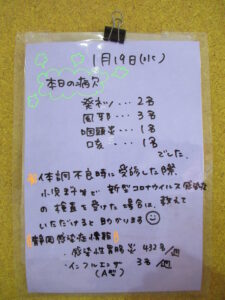 1月19日(水)
本日の病欠
発熱・・・2名
風邪・・・3名
咽頭炎・・・1名
咳・・・1名
でした。
体調不良時に受診した際、
小児科等で新型コロナウイルス感染症
の検査を受けた場合は、教えて
いただけると助かります
静岡感染症情報
・感染性胃腸炎 432名/週
・インフルエンザ 3名/週
(A型)